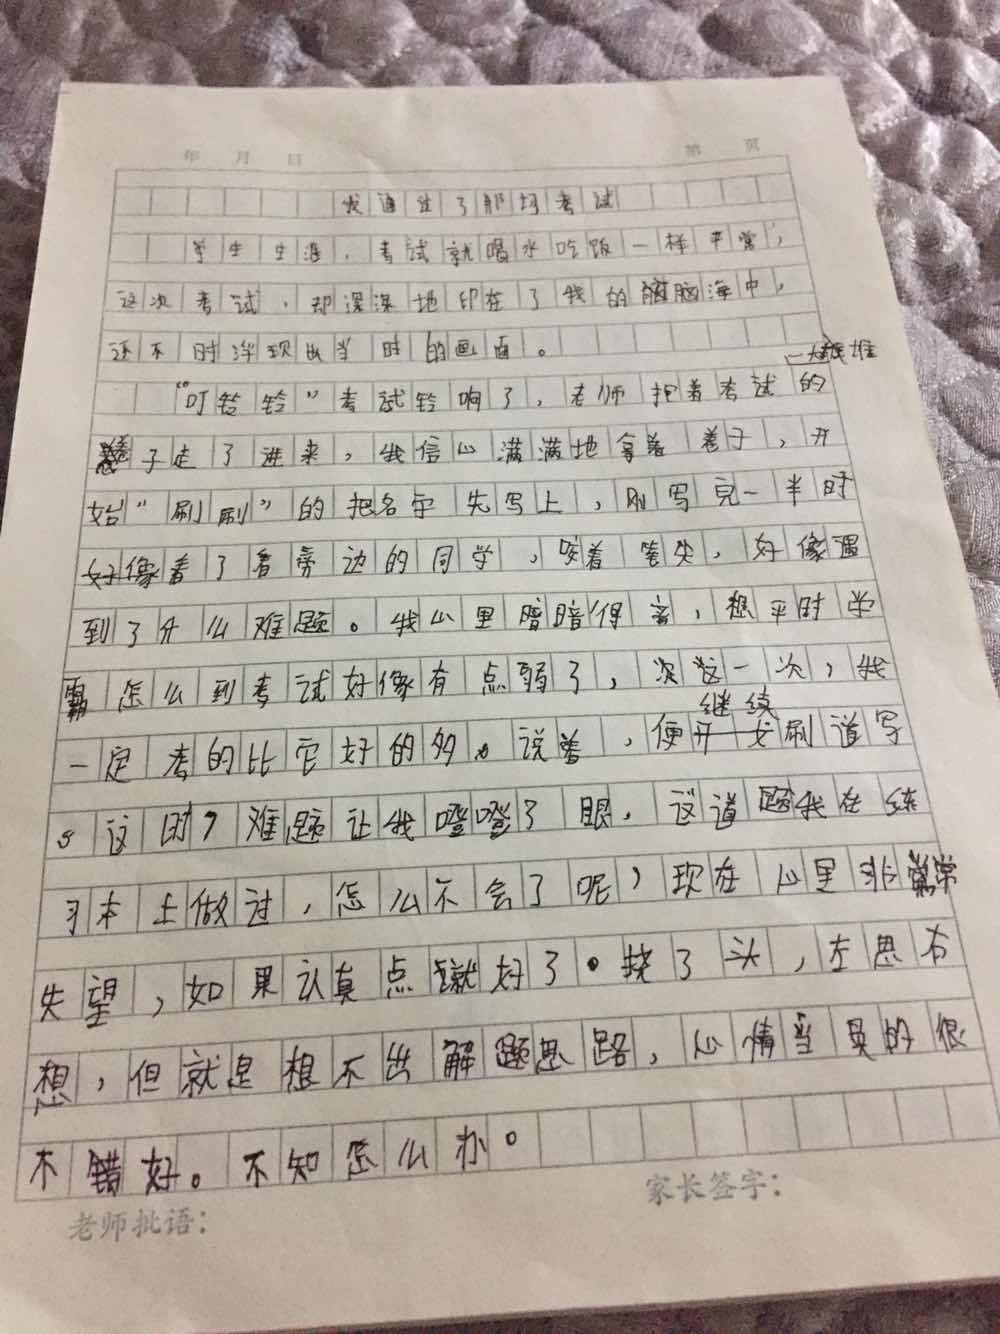 年 月 日 第 页
我通过了那场考试
学生生涯,考试就喝水吃饭一样平常,
这次考试,却深深地印在了我的脑海中,
还不时浮现出当时的画面。
一大堆
“叮铃铃”考试铃响了,老师把着考试的
卷子走了进来,我信心满满地拿着卷子,开
始“刷刷”的把名字先写上,刚写完一半时
好像看了看旁边的同学,咬着笔尖,好像遇
到了什么难题。我心里暗暗得意,想平时学
霸怎么到考试好像有点弱了,次这一次,我
继续
一定考的比它好的多。说着,便刷道写
。这时,难题让我噔噔了眼,这道题我在练
习本上做过,怎么不会了呢,现在心里非常
失望,如果认真点就好了。挠了头,左思右
想,但就是想不出解题思路,心情当真的很
不好。不知怎么办。
家长签字:
老师批语: